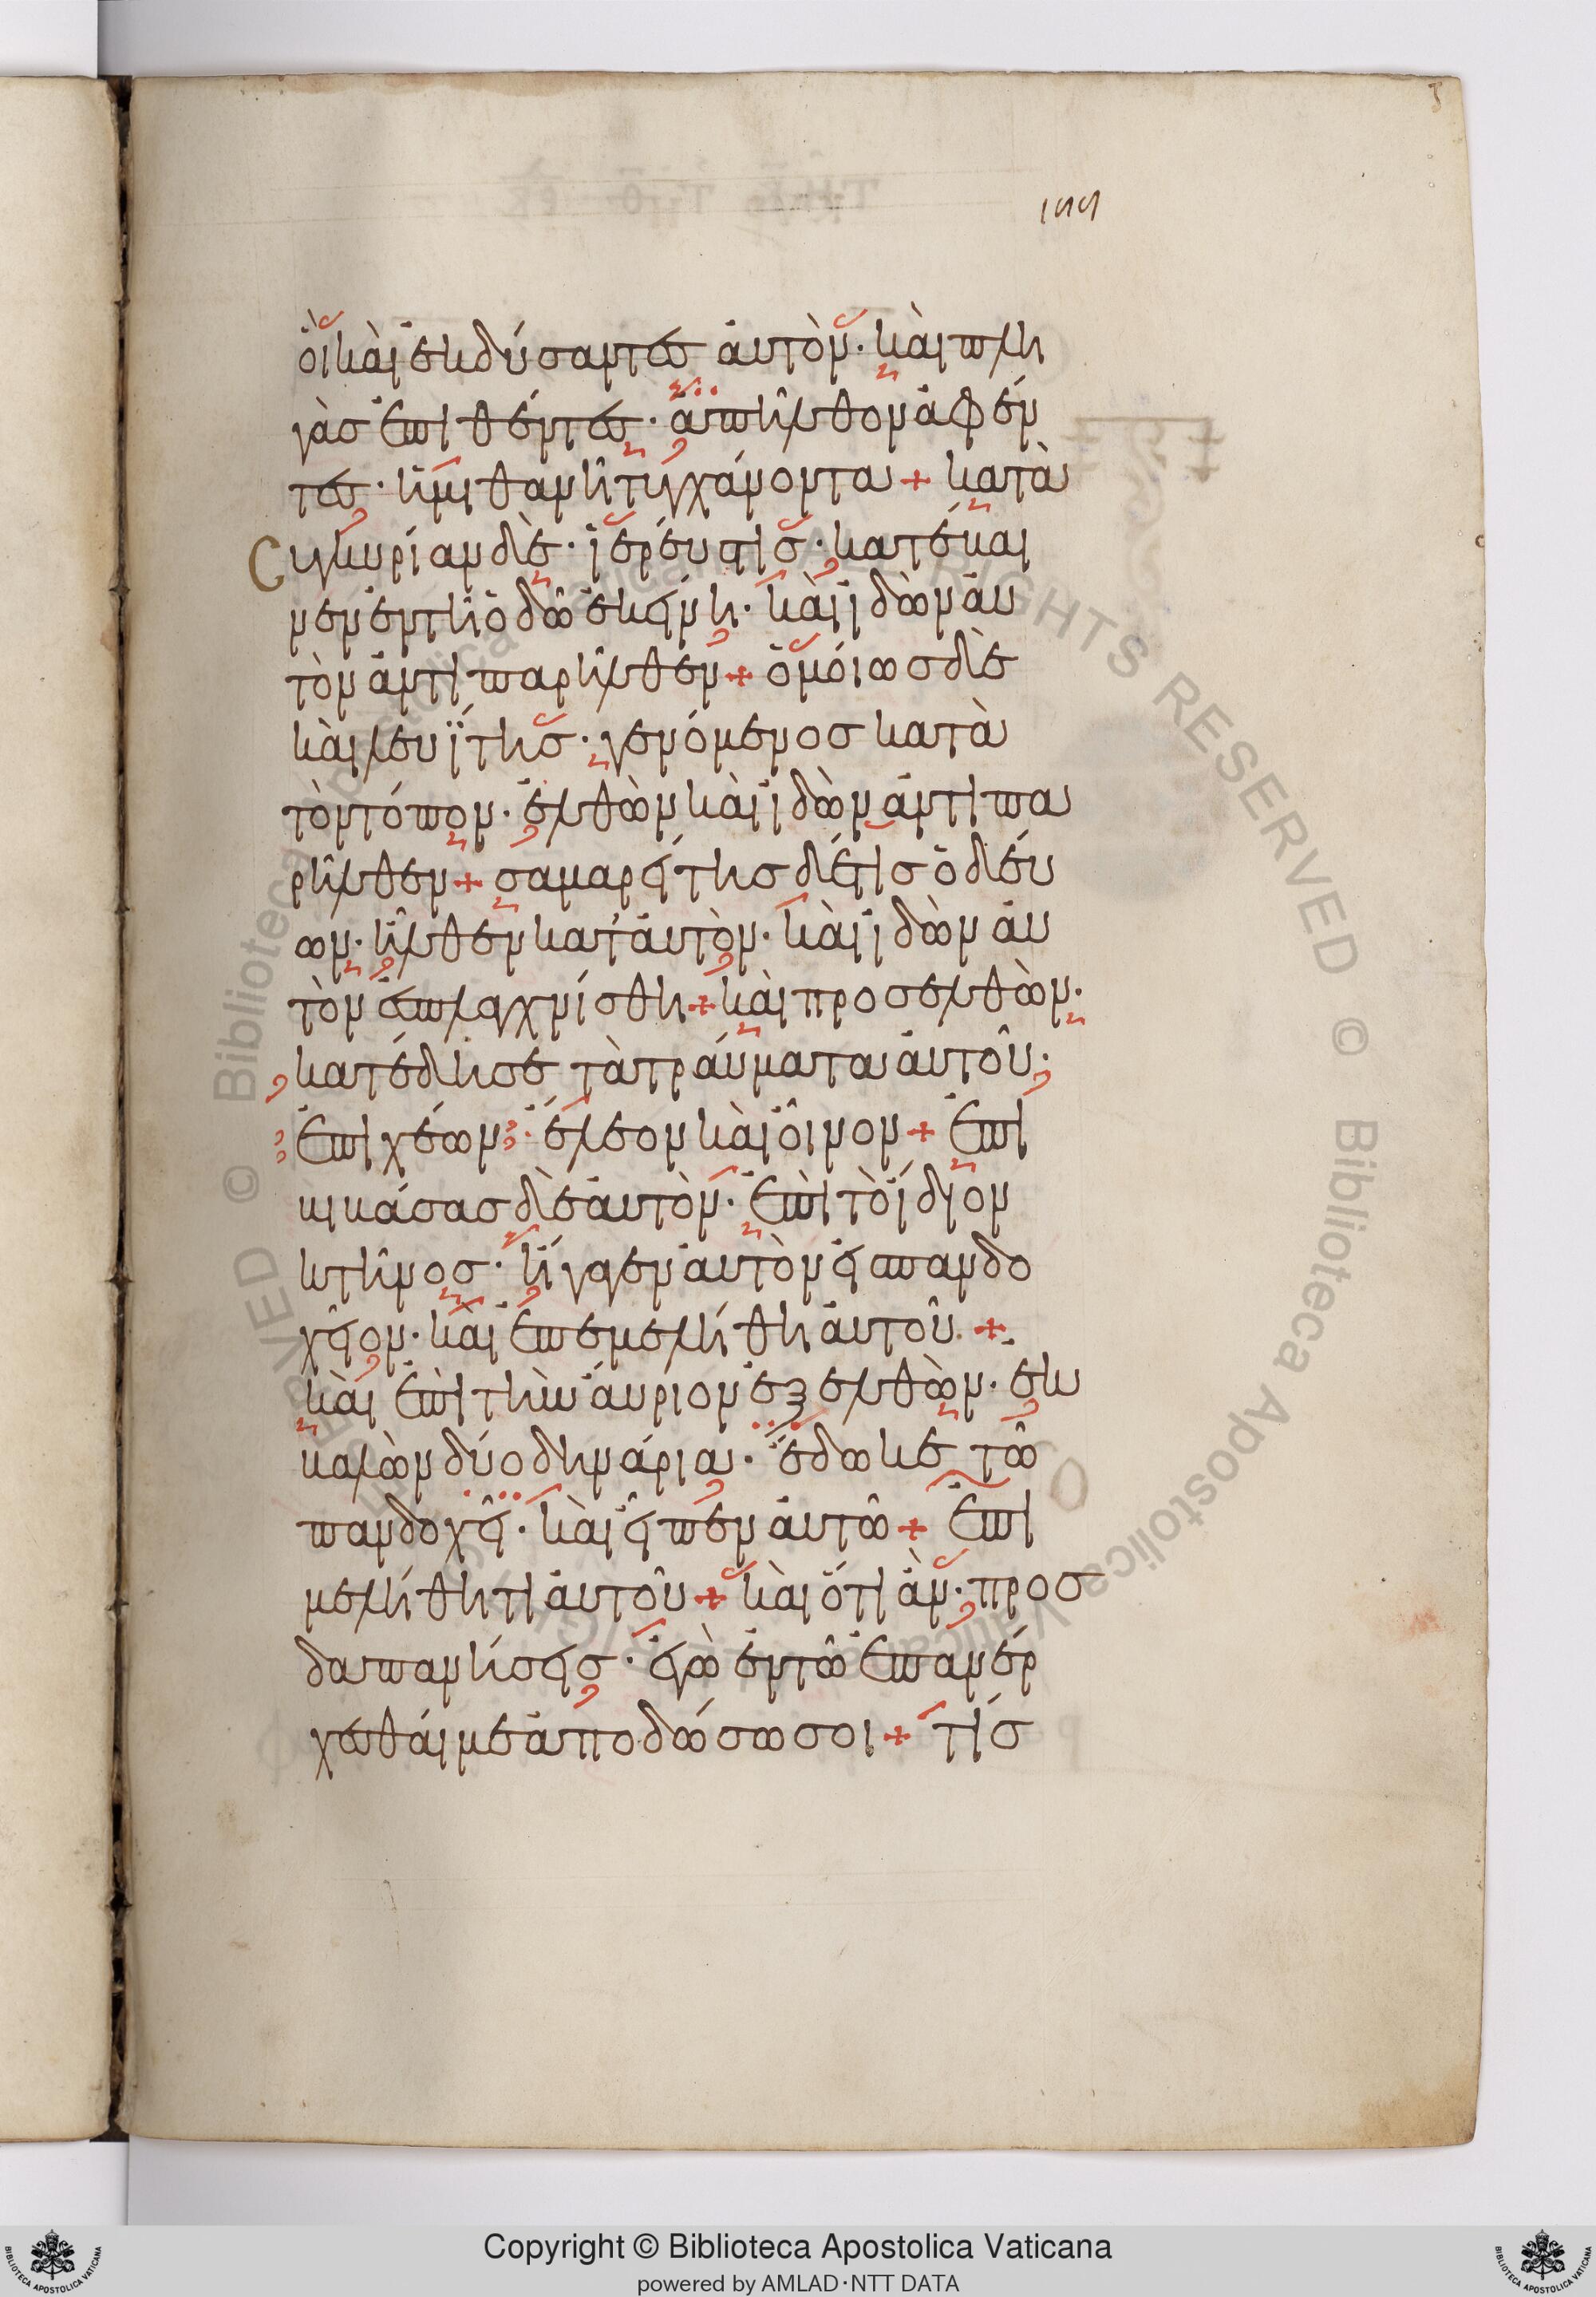 199
οἳ καὶ ἐκδύσαντες αὐτὸν· καὶ πλη
γὰς ἐπιθέντες· ἀπῆλθον ἀφέν
τες· ἡμιθανῆ τυγχάνοντα + κατὰ
Συγκυρίαν δὲ· ἱερεύς τις· κατέβαι
νεν ἐν τῆ ὁδῶ ἐκείνη· καὶ ἰδὼν αὐ
τὸν ἀντιπαρῆλθεν + ὁμοίως δὲ
καὶ λευΐτης· γενόμενος κατὰ
τὸν τόπον· ἐλθὼν καὶ ἰδὼν ἀντιπα
ρῆλθεν + σαμαρείτης δέ τις ὁδεύ
ων· ἦλθεν κατ' αὐτὸν· καὶ ἰδὼν αὐ
τὸν ἐσπλαγχνίσθη + καὶ προσελθὼν·
κατέδησε τὰ τραύματα αὐτοῦ·
ἐπιχέων· ἔλεον καὶ οἶνον + ἐπι
βιβάσας δὲ αὐτὸν· ἐπὶ τὸ ἴδιον
κτῆνος· ἤγαγεν αὐτὸν εἰς πανδο
χεῖον· καὶ ἐπεμελήθη αὐτοῦ +
καὶ ἐπὶ τὴν αὔριον ἐξελθὼν· ἐκ
βαλὼν δύο δηνάρια· ἔδωκε τῶ
πανδοχεῖ· καὶ εἶπεν αὐτῶ + ἐπι
μελήθητι αὐτοῦ + καὶ ὅτι ἂν· προσ
δαπανήσεις· ἐγὼ ἐν τῶ ἐπανέρ
χεσθαί με ἀποδώσω σοι + τίς
Copyright © Biblioteca Apostolica Vaticana
powered by AMLAD·NTT DATA